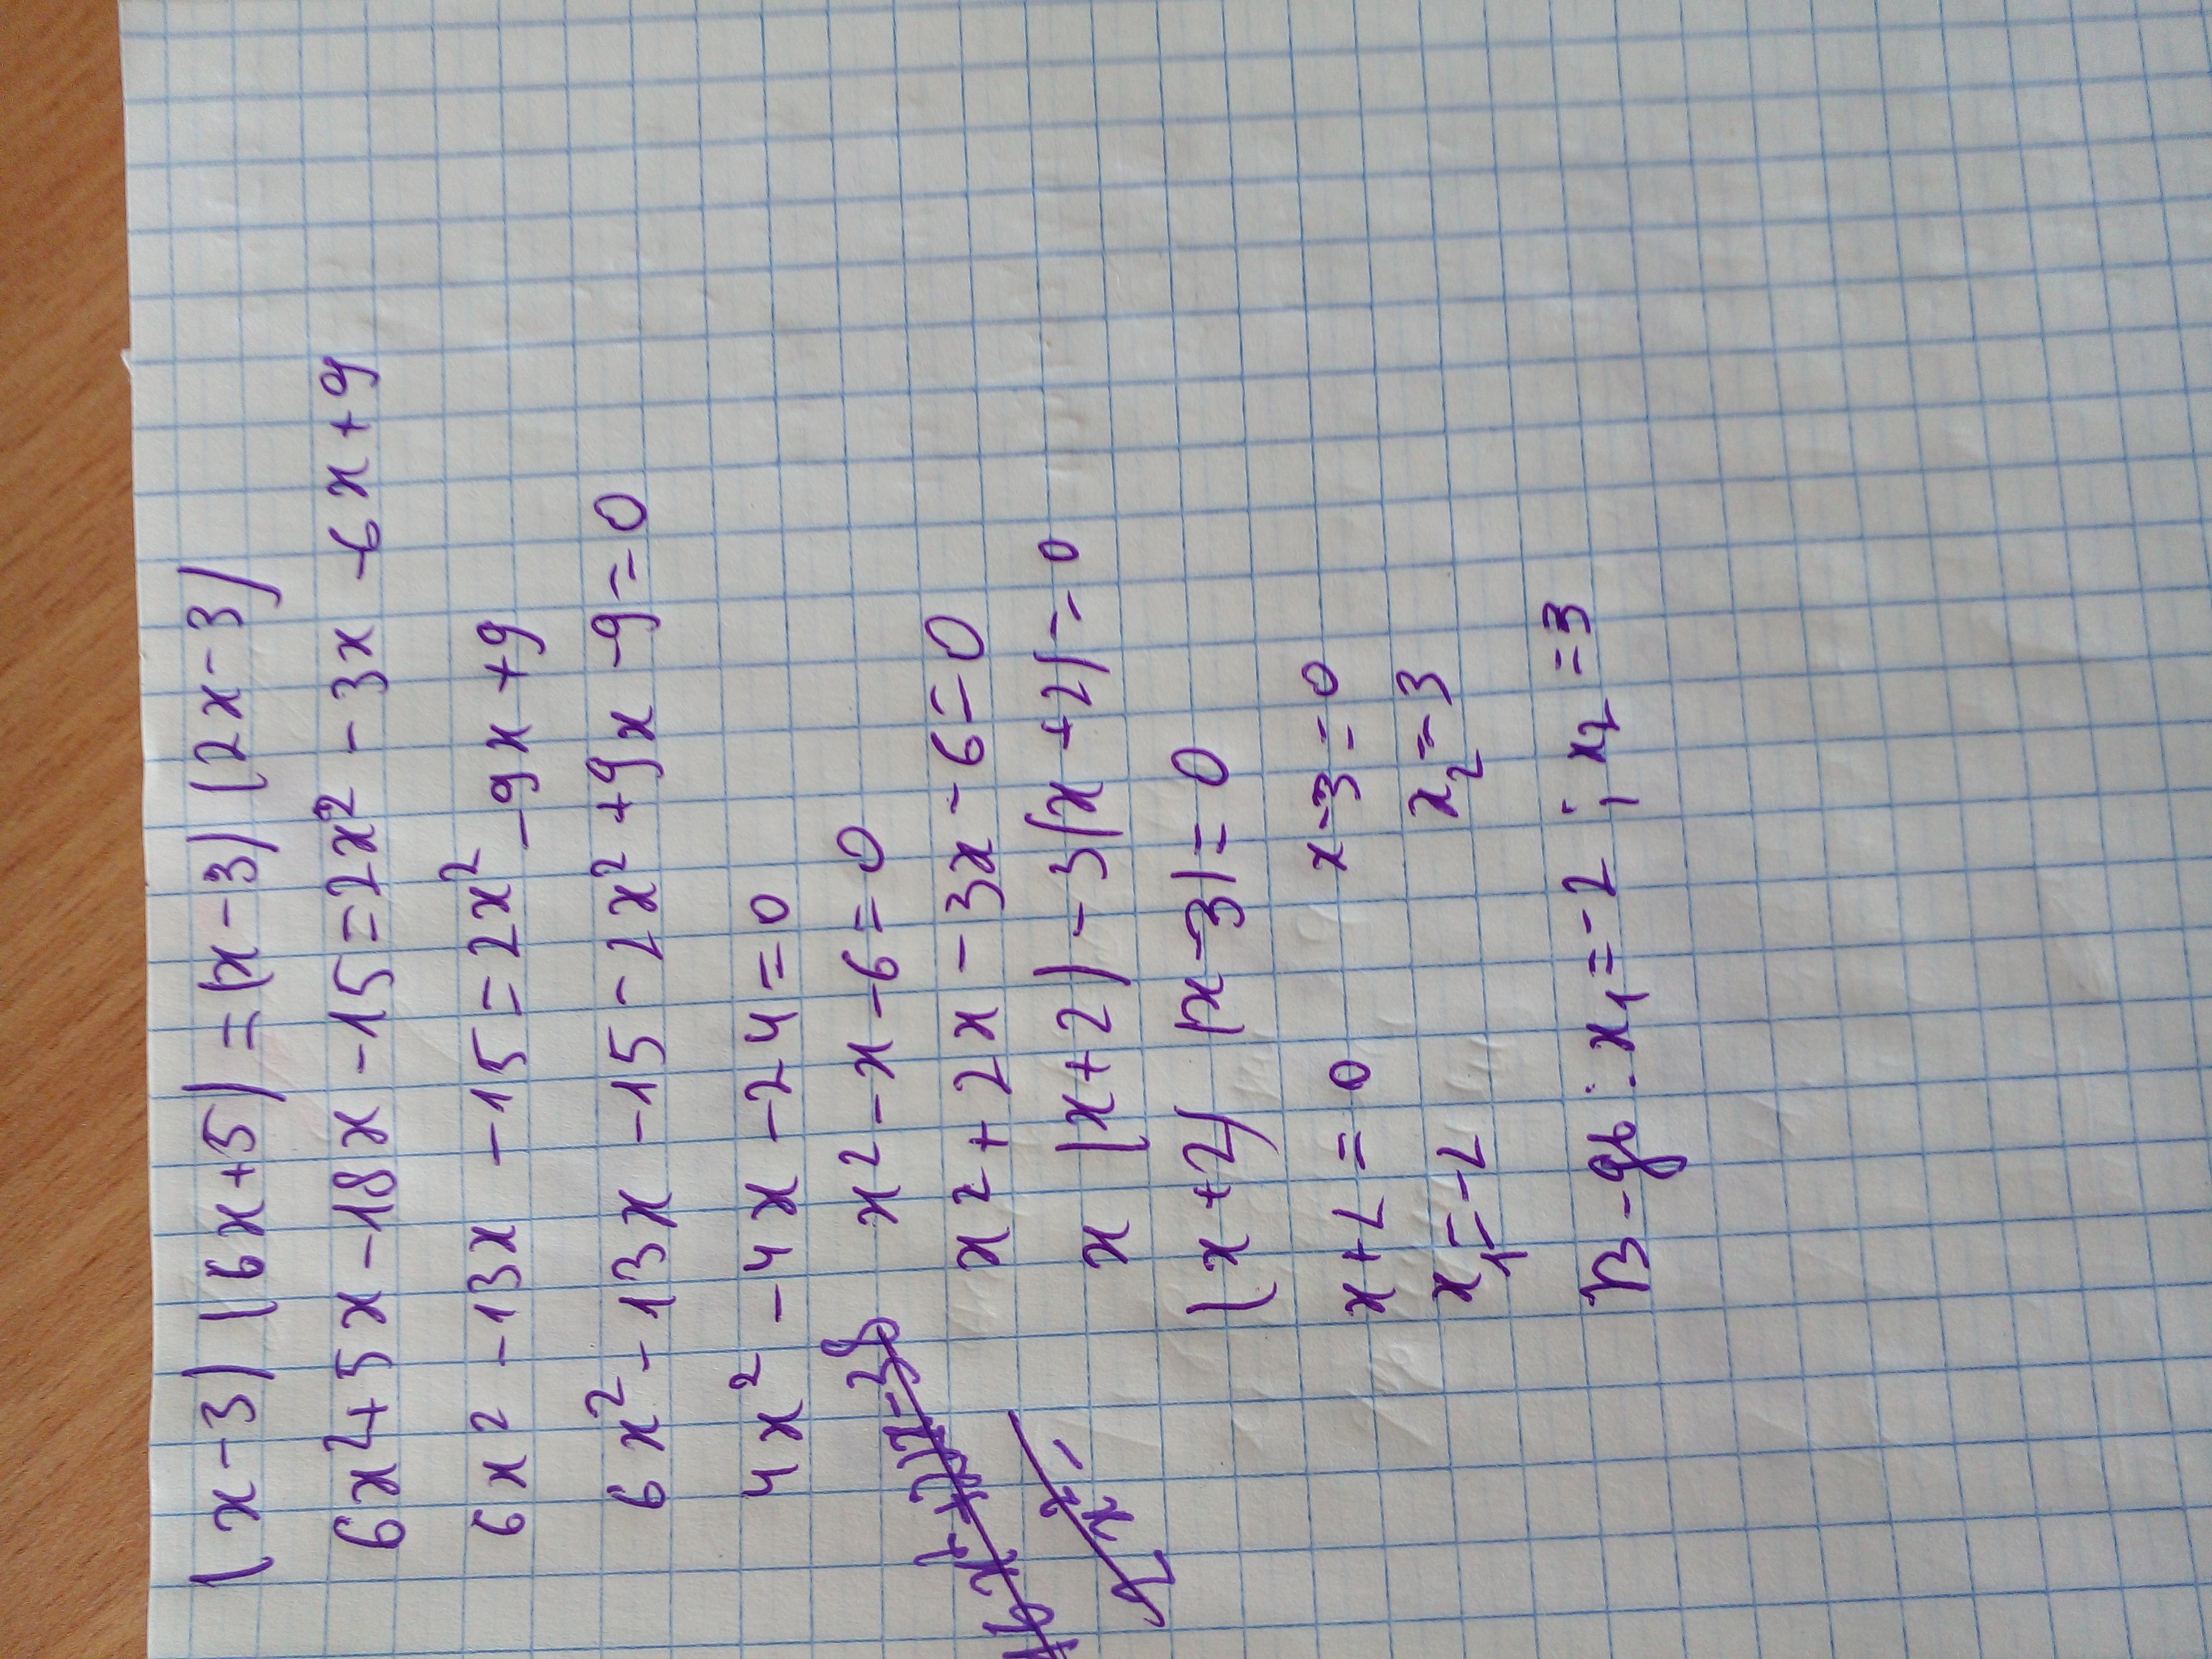 (x-3)(6x+5)=(x-3)(2x-3)
6x²+5x-18x-15=2x²-3x-6x+9
6x²-13x-15=2x²-9x+9
6x²-13x-15-2x²+9x-9=0
4x²-4x-24=0
x²-x-6=0
x²+2x-3x-6=0
x(x+2)-3(x+2)=0
(x+2)(x-3)=0
x+2=0 x-3=0
x₁=-2 x₂=3
В-дь: x₁=-2; x₂=3